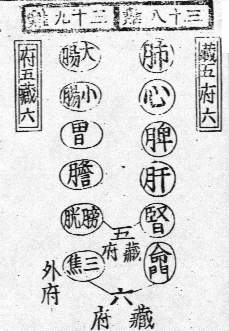 三十八
三十九
藏五府六
肺
心
脾
肝
腎
命門
大腸
小腸
胃
膽
膀胱
三焦
府五藏六
五
藏府
外府
六
藏府